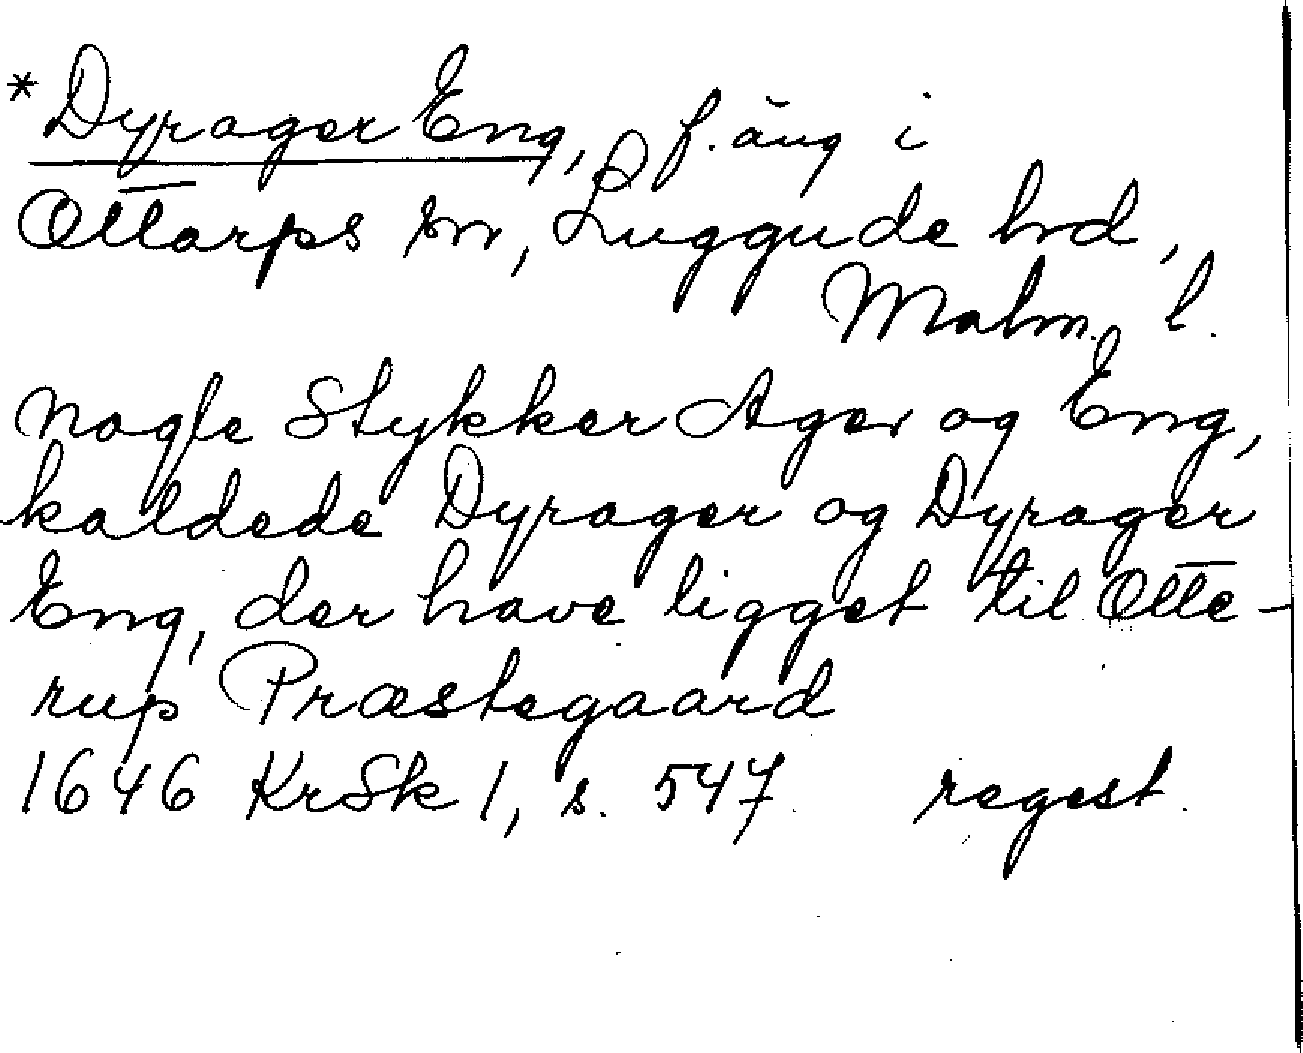 *Dyrager Eng, f. äng i
Ottarps sn, Luggude hd,
Malm. l.
Nogle Stykker Ager og Eng,
kaldede Dyrager og Dyrager
Eng, der have ligget til Otte-
rup Præstegaard
1646 KrSk 1, s. 547. regest.